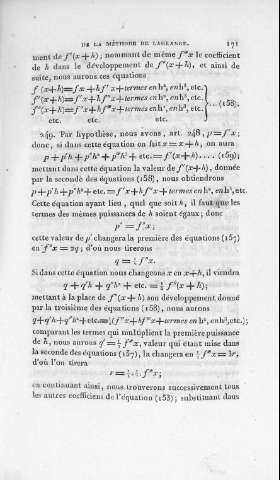 DE LA MÉTHODE DE LAGRANGE. 171
ment de f'(x+h), nommant de même f''x le coefficient
de h dans le développement de f'(x+h), et ainsi de
suite, nous aurons ces équations
f (x+h)=fx+hf'x+termes en h², en h³, etc.
f'(x+h)=f'x+hf''x+termes en h², en h³, etc. }...(158).
f''(x+h)=f''x+hf'''x+termes en h², en h³, etc.
etc. etc. etc.
249. Par hypothèse, nous avons, art. 248, p=f'x;
donc, si dans cette équation on fait x=x+h, on aura
p+p'h+p''h²+p'''h³+etc.=f'(x+h)....(159);
mettant dans cette équation la valeur de f'(x+h), donnée
par la seconde des équations (158), nous obtiendrons
p+p'h+p''h²+etc.=f'x+hf''x+termes en h², en h³, etc.
Cette équation ayant lieu, quel que soit h, il faut que les
termes des mêmes puissances de h soient égaux; donc
p'=f''x;
cette valeur de p' changera la première des équations (157)
en f''x=2q; d'où nous tirerons
q=½f''x.
Si dans cette équation nous changeons x en x+h, il viendra
q+q'h+q''h²+etc.=½f''(x+h);
mettant à la place de f''(x+h) son développement donné
par la troisième des équations (158), nous aurons
q+q'h+q''h²+etc.=½(f''x+hf'''x+termes en h², en h³, etc.);
comparant les termes qui multiplient la première puissance
de h, nous aurons q'=½f'''x, valeur qui étant mise dans
la seconde des équations (157), la changera en ½f'''x=3r,
d'où l'on tirera
r=½.⅓.f'''x;
en continuant ainsi, nous trouverons successivement tous
les autres coefficiens de l'équation (153); substituant dans